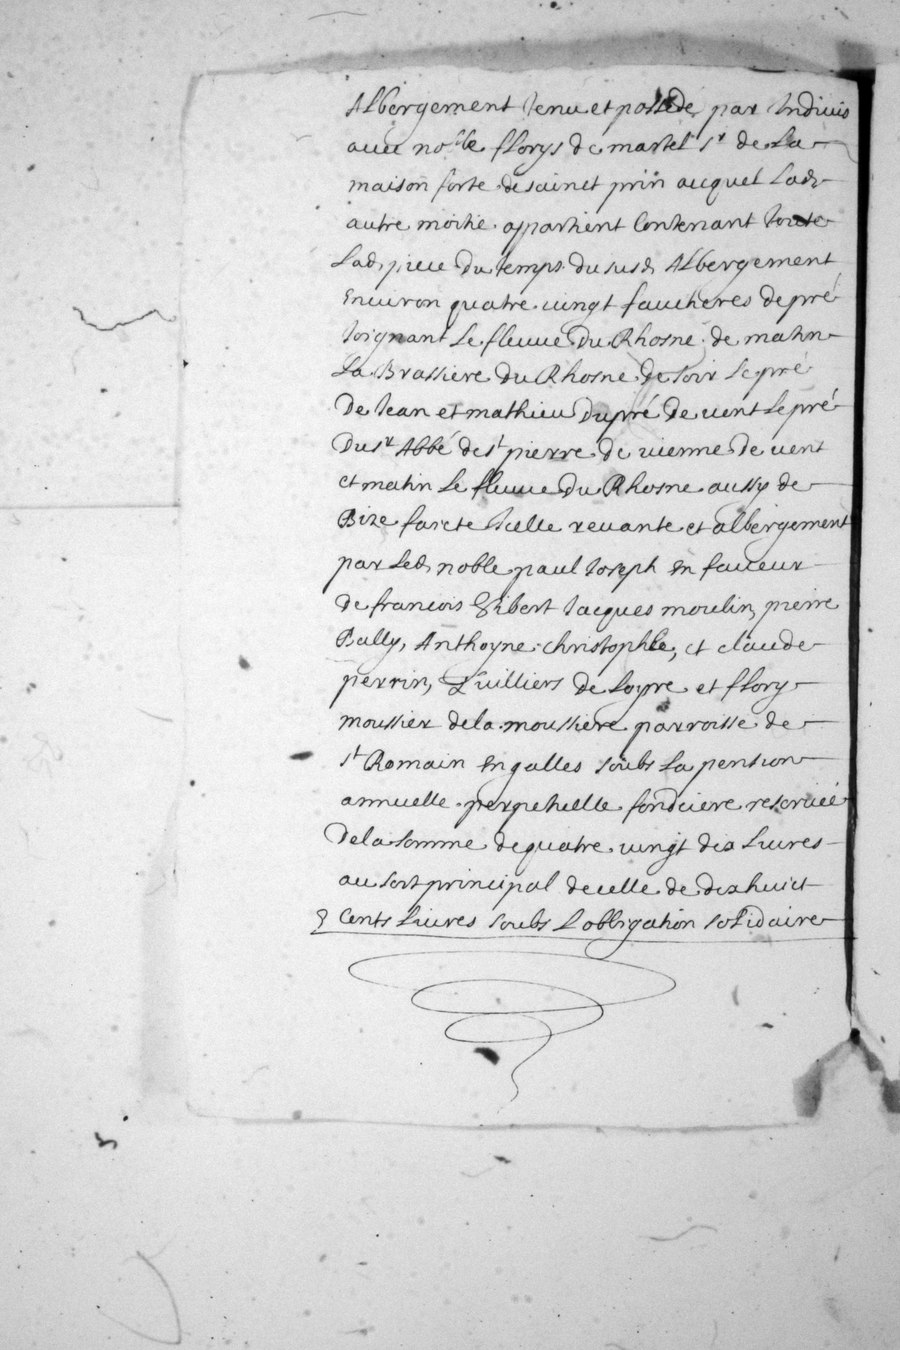 Albergement tenu et possedé par Indivis
avec noble fflorys de martel sr de La
maison forte de sainct prin auquel Lad.
autre moitié appartient Contenant toute
Lad. piece du temps du susd. Albergement
Environ quatre vingt faucheres de pré
Joignant Le fleuve du Rhosne de matin
La Brassiere du Rhosne de soir Le pré
De Jean et mathieu dupré de vent Le pré
Du sr Abbé de st pierre de vienne de vent
et matin Le fleuve du Rhosne aussy de
Bize faicte Icelle revante et albergement
par Led. noble paul Joseph En faveur
de francois Gibert Jacques moulin, pierre
Bally, Anthoyne christophle, et claude
perrin, Cuilliers de Loyre et fflory
moussier de la moussiere parroisse de
st Romain En galles soubs La pension
annuelle perpetuelle fonciere reservée
De la somme de quatre vingt dix Livres
au sort principal de celle de dix huict
Cents Livres soubs Lobligation solidaire